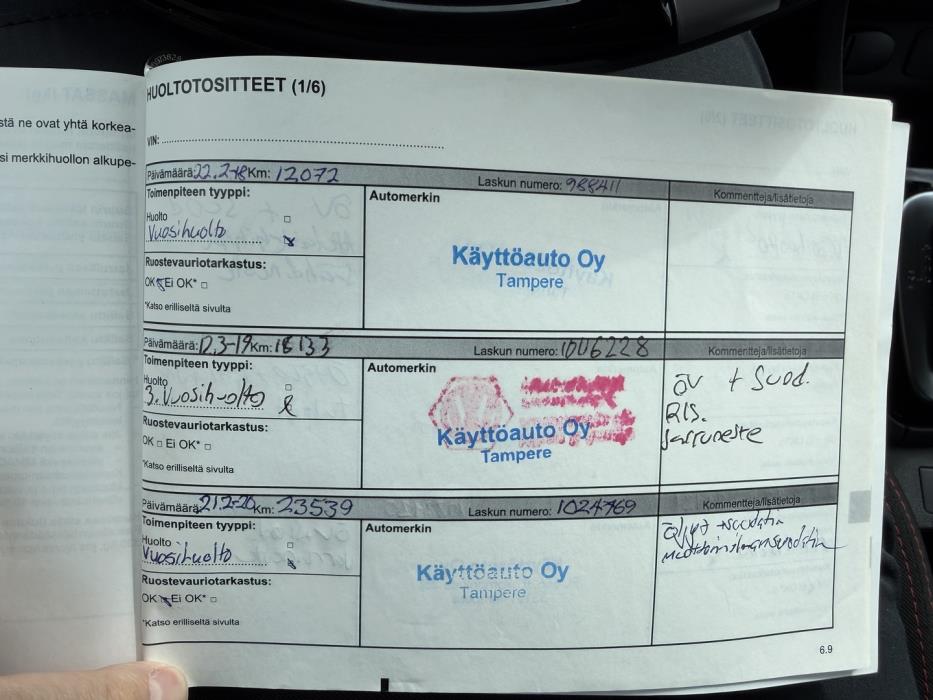 stä ne ovat yhtä korkea-
si merkkihuollon alkupe-
HUOLTOTOSITTEET (1/6)
VIN:
Päivämäärä: 22.2-18 Km: 12072 Laskun numero: 988411 Kommentteja/lisätietoja
Toimenpiteen tyyppi: Automerkin
Huolto
Vuosihuolto
Käyttöauto Oy
Tampere
Ruostevauriotarkastus:
OK Ei OK*
*Katso erilliseltä sivulta
Päivämäärä: 12.3-19 Km: 18133 Laskun numero: 1006228 Kommentteja/lisätietoja
Toimenpiteen tyyppi: Automerkin
Huolto
3. Vuosihuolto
Käyttöauto Oy
Tampere
öv + Suod.
RIS.
Jarruneste
Ruostevauriotarkastus:
OK Ei OK*
*Katso erilliseltä sivulta
Päivämäärä: 21.2-20 Km: 23539 Laskun numero: 1024769 Kommentteja/lisätietoja
Toimenpiteen tyyppi: Automerkin
Huolto
Vuosihuolto
Käyttöauto Oy
Tampere
Öljyt + suodatin
Ruostevauriotarkastus:
OK Ei OK*
*Katso erilliseltä sivulta
6.9